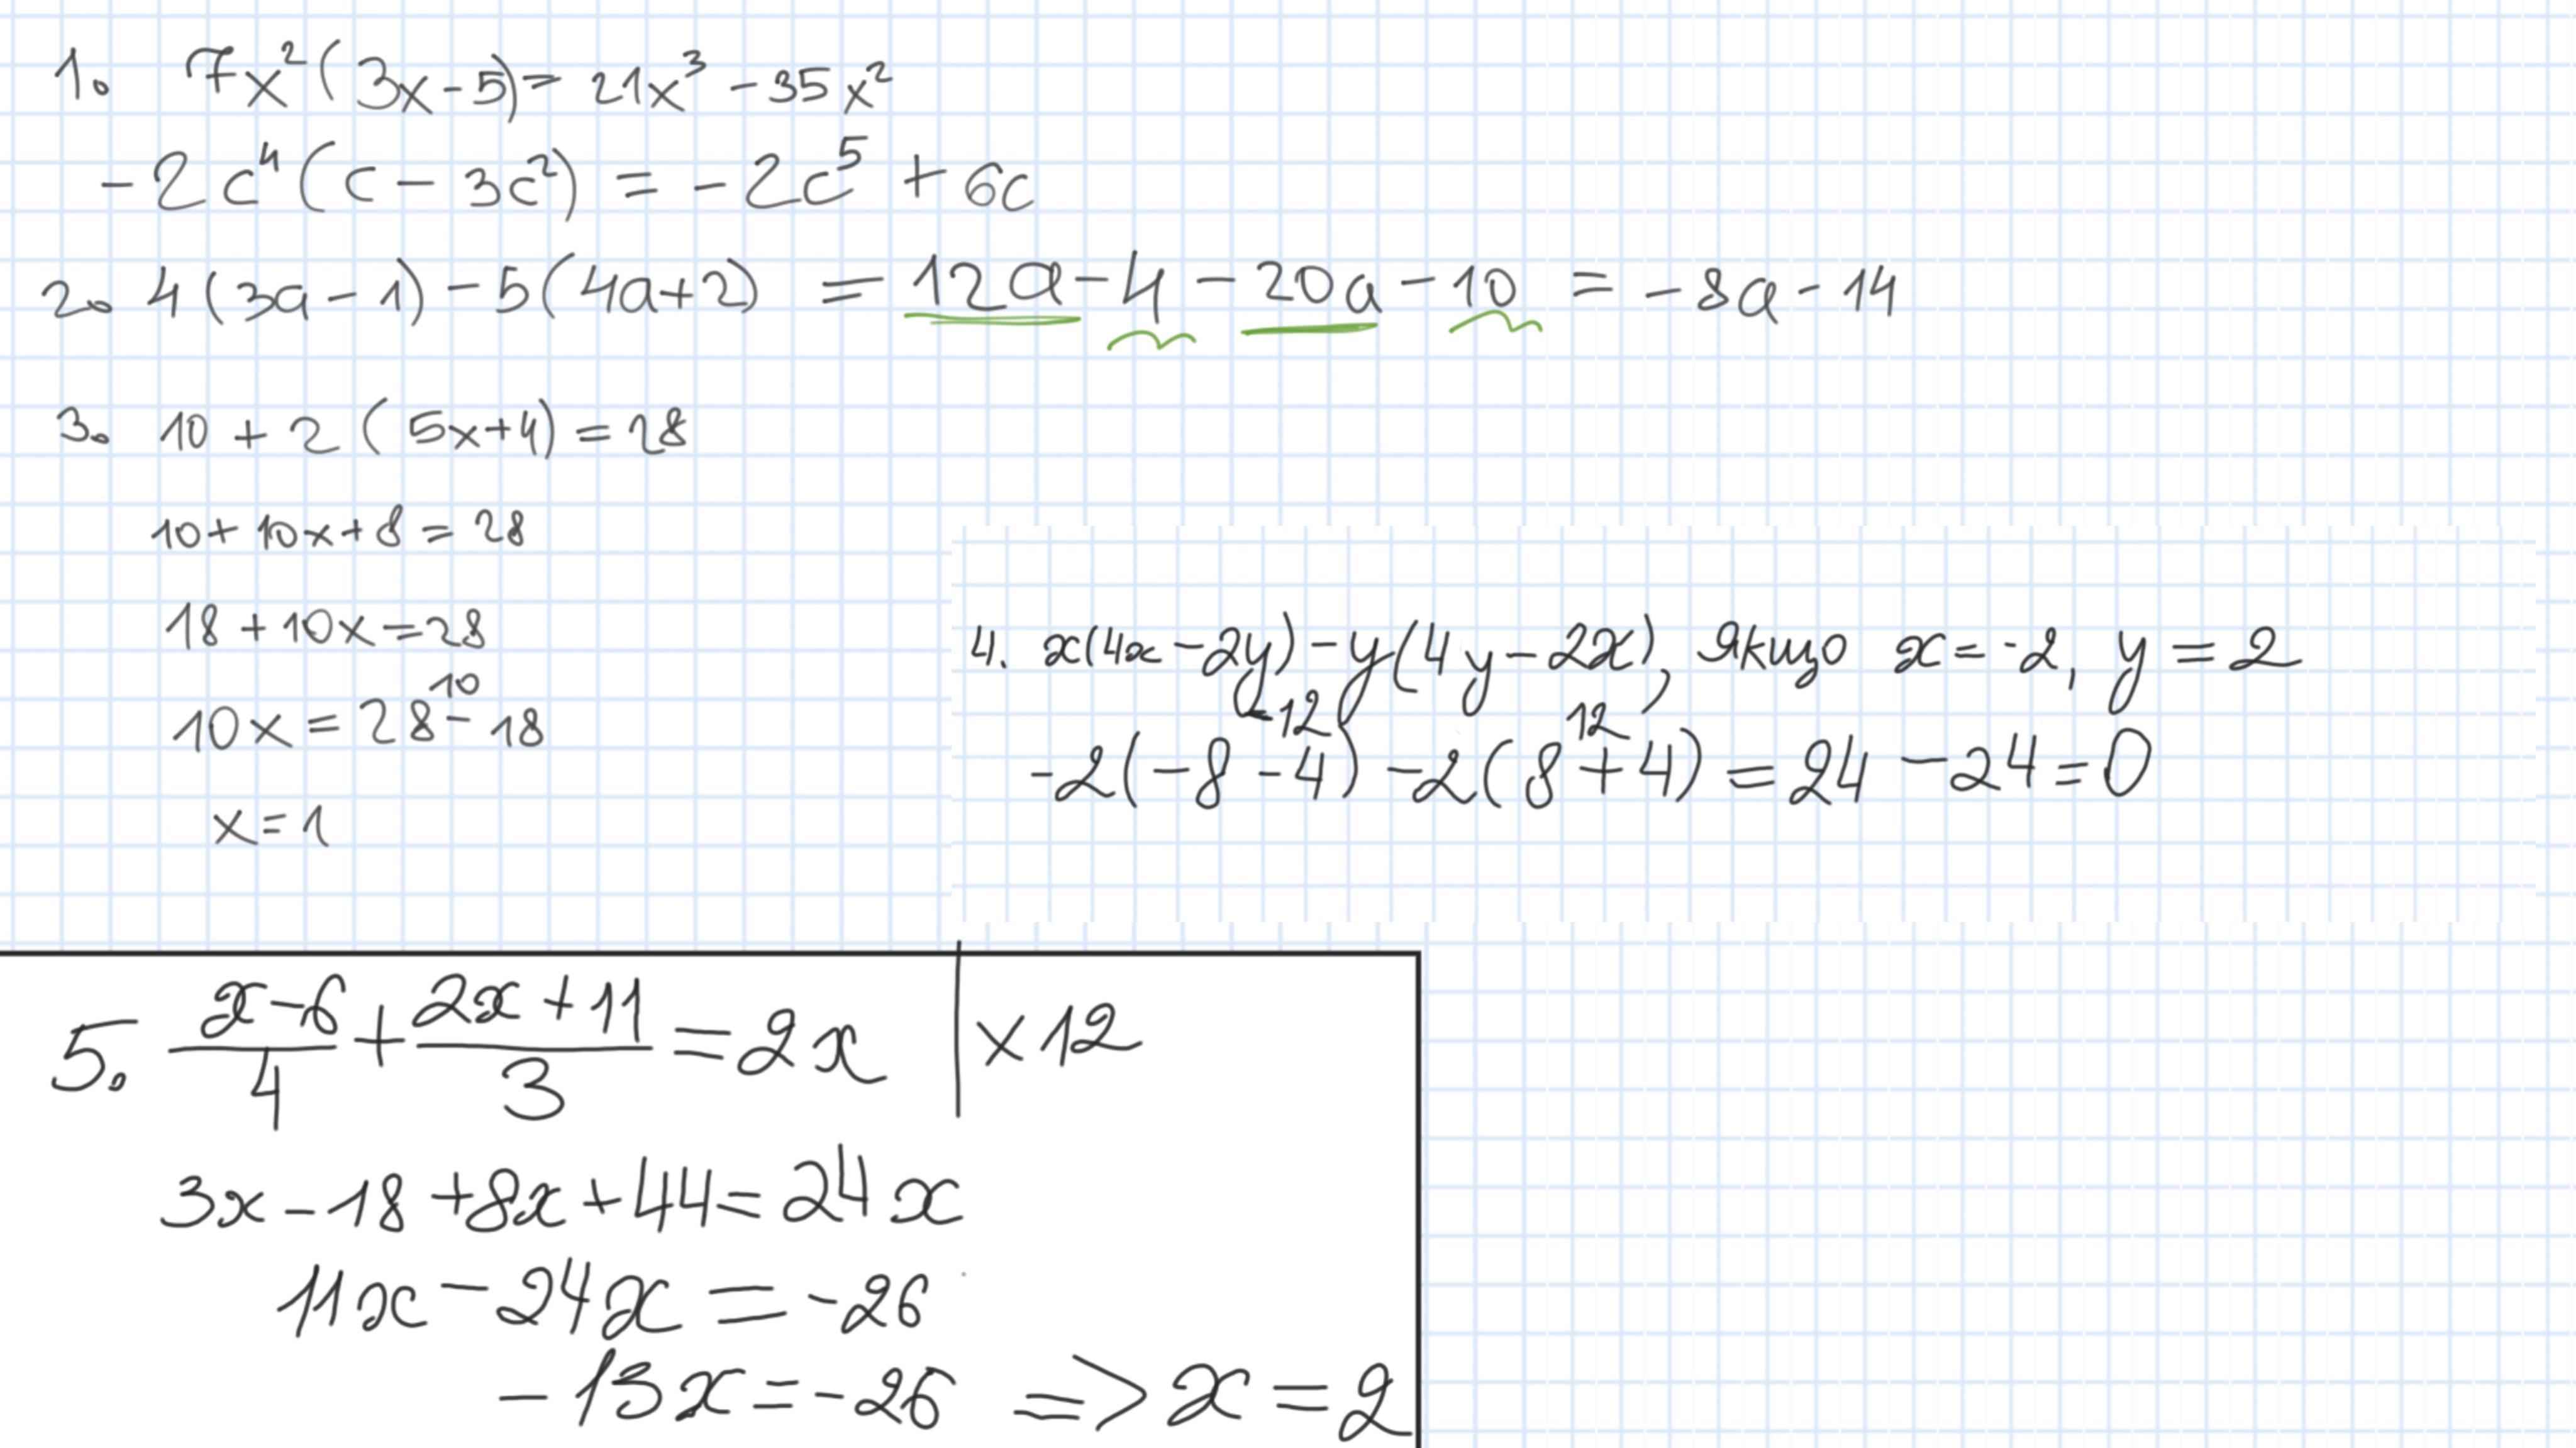 1. 7x²(3x-5)=21x³-35x²
-2c⁴(c-3c²)=-2c⁵+6c
2. 4(3a-1)-5(4a+2)=12a-4-20a-10=-8a-14
3. 10+2(5x+4)=28
10+10x+8=28
18+10x=28
10
10x=28-18
x=1
4. x(4x-2y)-y(4y-2x), якщо x=-2, y=2
-12 12
-2(-8-4)-2(8+4)=24-24=0
5. (x-6)/4+(2x+11)/3=2x |×12
3x-18+8x+44=24x
11x-24x=-26
-13x=-26 => x=2